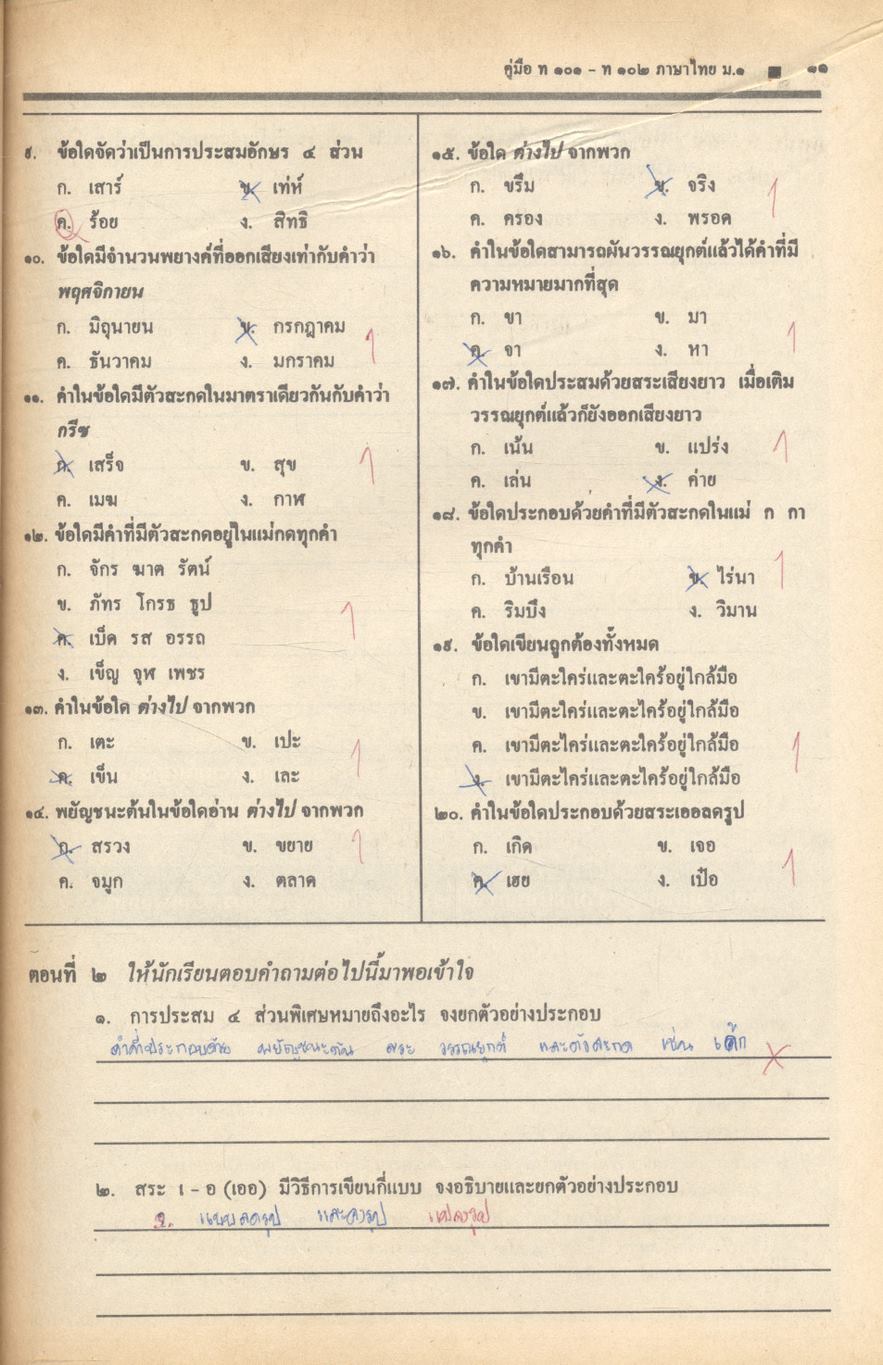 คู่มือ ท ๑๐๑ - ท ๑๐๒ ภาษาไทย ม.๑ ■ ๑๑
๙. ข้อใดจัดว่าเป็นการประสมอักษร ๔ ส่วน
ก. เสาร์ ข. เท่ห์
ค. ร้อย ง. สิทธิ
๑๐. ข้อใดมีจำนวนพยางค์ที่ออกเสียงเท่ากับคำว่า
พฤศจิกายน
ก. มิถุนายน ข. กรกฎาคม
ค. ธันวาคม ง. มกราคม
1
๑๑. คำในข้อใดมีตัวสะกดในมาตราเดียวกันกับคำว่า
กรีซ
ก. เสร็จ ข. สุข
1
ค. เมฆ ง. กาฬ
๑๒. ข้อใดมีคำที่มีตัวสะกดอยู่ในแม่กดทุกคำ
ก. จักร ฆาต รัตน์
ข. ภัทร โกรธ ธูป
1
ค. เบ็ด รส อรรถ
ง. เข็ญ จุฬ เพชร
๑๓. คำในข้อใด ต่างไป จากพวก
ก. เตะ ข. เปะ
1
ค. เข็น ง. เละ
๑๔. พยัญชนะต้นในข้อใดอ่าน ต่างไป จากพวก
ก. สรวง ข. ขยาย
1
ค. จมูก ง. ตลาด
๑๕. ข้อใด ต่างไป จากพวก
ก. ขรึม ข. จริง
1
ค. ครอง ง. พรอด
๑๖. คำในข้อใดสามารถผันวรรณยุกต์แล้วได้คำที่มี
ความหมายมากที่สุด
ก. ขา ข. มา
1
ค. จา ง. หา
๑๗. คำในข้อใดประสมด้วยสระเสียงยาว เมื่อเติม
วรรณยุกต์แล้วก็ยังออกเสียงยาว
ก. เน้น ข. แปร่ง
1
ค. เล่น ง. ค่าย
๑๘. ข้อใดประกอบด้วยคำที่มีตัวสะกดในแม่ ก กา
ทุกคำ
ก. บ้านเรือน ข. ไร่นา
1
ค. ริมบึง ง. วิมาน
๑๙. ข้อใดเขียนถูกต้องทั้งหมด
ก. เขามีตะใคร่และตะใคร้อยู่ใกล้มือ
ข. เขามีตะใคร่และตะไคร้อยู่ใกล้มือ
ค. เขามีตะไคร่และตะใคร้อยู่ใกล้มือ
1
ง. เขามีตะไคร่และตะไคร้อยู่ใกล้มือ
๒๐. คำในข้อใดประกอบด้วยสระเออลดรูป
ก. เกิด ข. เจอ
1
ค. เฮย ง. เป๋อ
ตอนที่ ๒ ให้นักเรียนตอบคำถามต่อไปนี้มาพอเข้าใจ
๑. การประสม ๔ ส่วนพิเศษหมายถึงอะไร จงยกตัวอย่างประกอบ
คำที่ประกอบด้วย พยัญชนะต้น สระ วรรณยุกต์ และตัวสะกด เช่น
๒. สระ เ - อ (เออ) มีวิธีการเขียนกี่แบบ จงอธิบายและยกตัวอย่างประกอบ
2. แบบลดรูป และคงรูป แปลงรูป